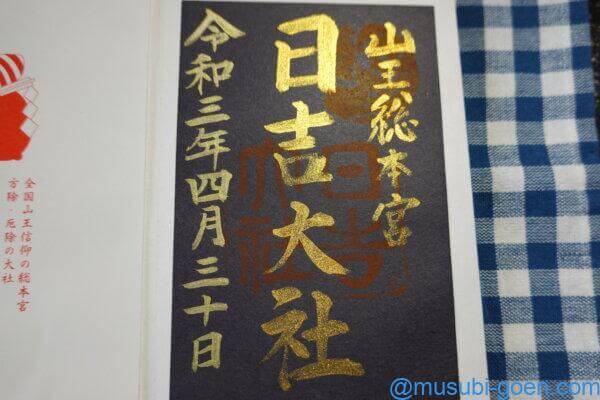 山王総本宮
日吉大社
日吉大社
令和三年四月三十日
全国山王信仰の総本宮
方除・厄除の大社
@musubi-goen.com